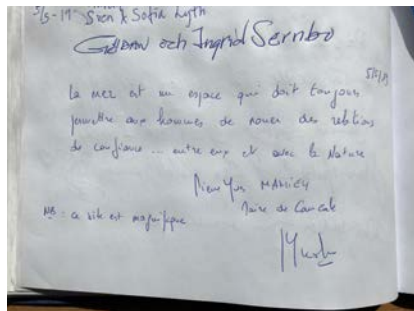 5/5-19 Siri & Sofia
Gudrun och Ingrid Sernbo
5/5/19
La mer est un espace qui doit toujours
permettre aux hommes de nouer des relations
de confiance... entre eux et avec la Nature
Pierre Yves MAHIEU
Maire de Cancale
NB : ce site est magnifique